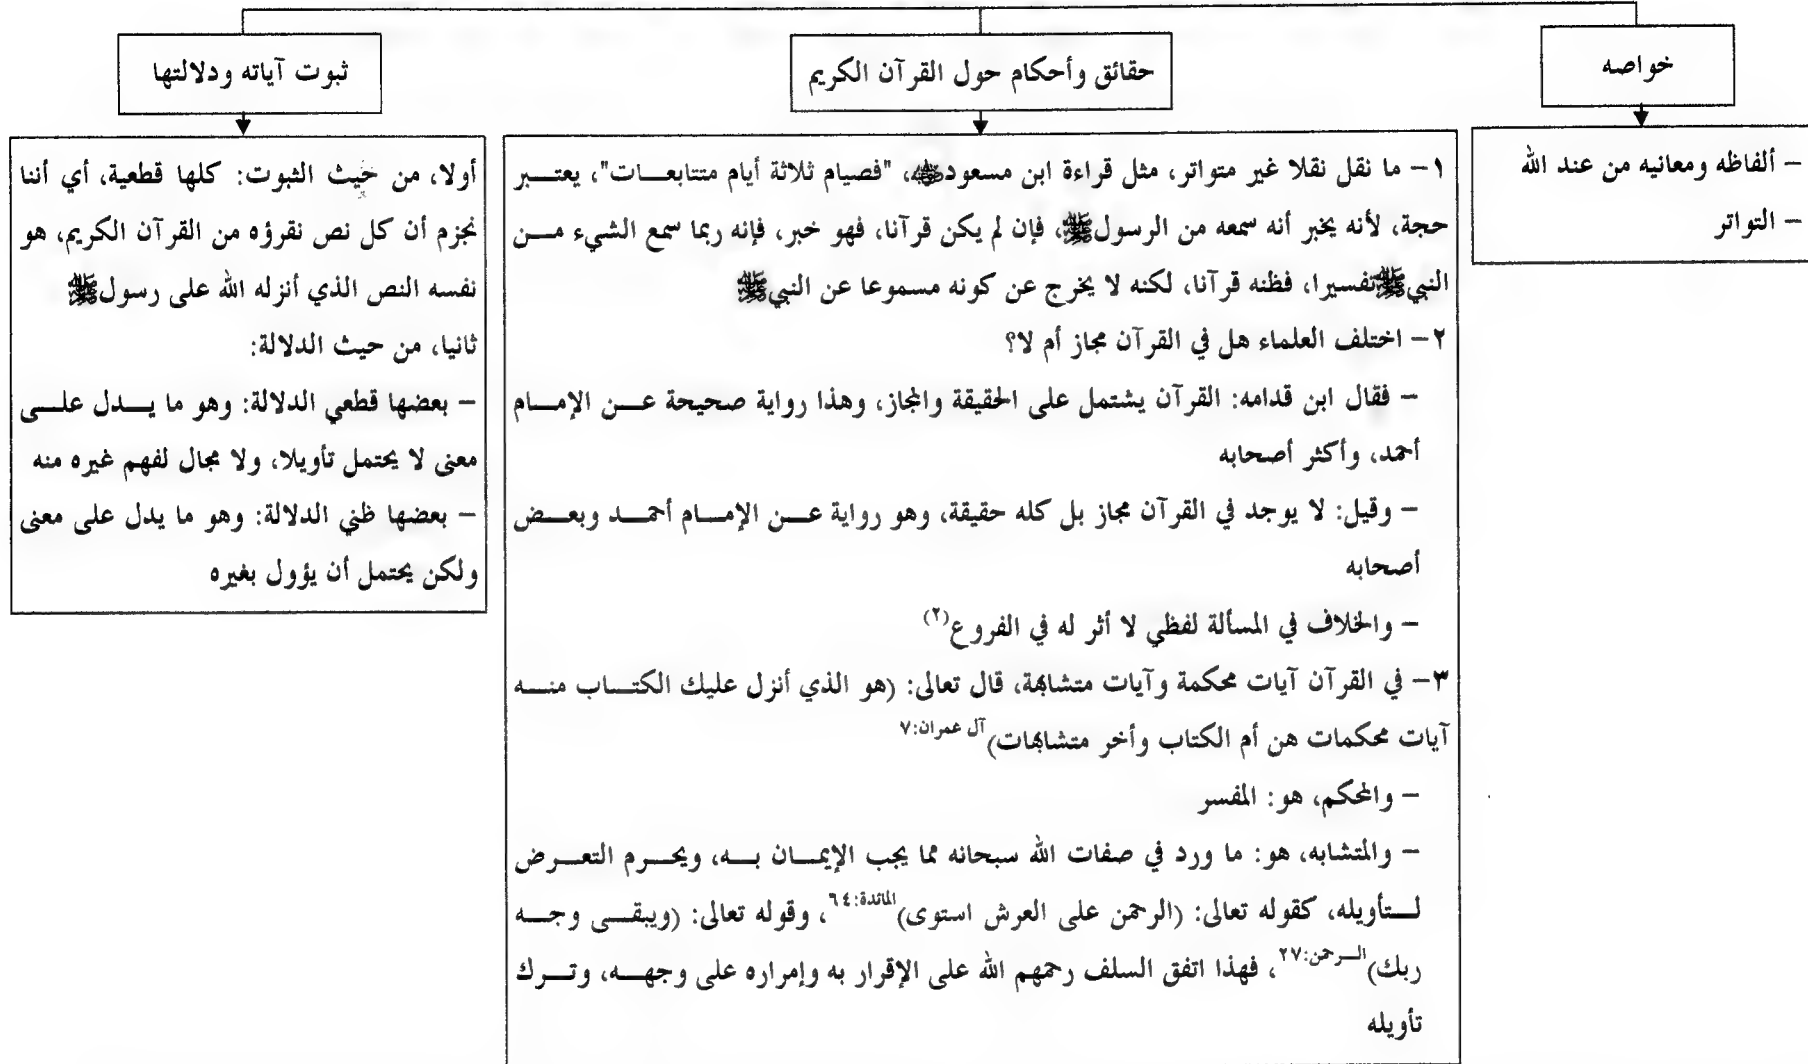 خواصه
– ألفاظه ومعانيه من عند الله
– التواتر
حقائق وأحكام حول القرآن الكريم
١– ما نقل نقلا غير متواتر، مثل قراءة ابن مسعودﷺ، "فصيام ثلاثة أيام متتابعات"، يعتبر
حجة، لأنه يخبر أنه سمعه من الرسولﷺ، فإن لم يكن قرآنا، فهو خبر، فإنه ربما سمع الشيء من
النبيﷺتفسيرا، فظنه قرآنا، لكنه لا يخرج عن كونه مسموعا عن النبيﷺ
٢– اختلف العلماء هل في القرآن مجاز أم لا؟
– فقال ابن قدامه: القرآن يشتمل على الحقيقة والمجاز، وهذا رواية صحيحة عن الإمام
أحمد، وأكثر أصحابه
– وقيل: لا يوجد في القرآن مجاز بل كله حقيقة، وهو رواية عن الإمام أحمد وبعض
أصحابه
– والخلاف في المسألة لفظي لا أثر له في الفروع(٢)
٣– في القرآن آيات محكمة وآيات متشابهة، قال تعالى: (هو الذي أنزل عليك الكتاب منه
آيات محكمات هن أم الكتاب وأخر متشابهات)آل عمران:٧
– والمحكم، هو: المفسر
– والمتشابه، هو: ما ورد في صفات الله سبحانه مما يجب الإيمان به، ويحرم التعرض
لتأويله، كقوله تعالى: (الرحمن على العرش استوى)المائدة:٦٤، وقوله تعالى: (ويبقى وجه
ربك)الرحمن:٢٧، فهذا اتفق السلف رحمهم الله على الإقرار به وإمراره على وجهه، وترك
تأويله
ثبوت آياته ودلالتها
أولا، من حيث الثبوت: كلها قطعية، أي أننا
نجزم أن كل نص نقرؤه من القرآن الكريم، هو
نفسه النص الذي أنزله الله على رسولﷺ
ثانيا، من حيث الدلالة:
– بعضها قطعي الدلالة: وهو ما يدل على
معنى لا يحتمل تأويلا، ولا مجال لفهم غيره منه
– بعضها ظني الدلالة: وهو ما يدل على معنى
ولكن يحتمل أن يؤول بغيره